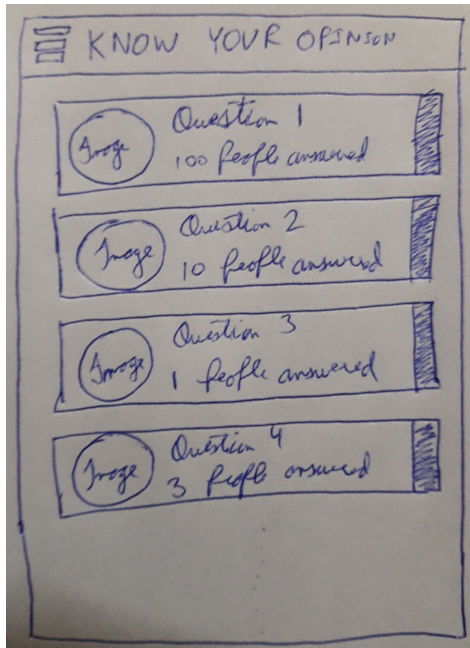 KNOW YOUR OPINION
Image
Question 1
100 People answered
Image
Question 2
10 People answered
Image
Question 3
1 People answered
Image
Question 4
3 People answered